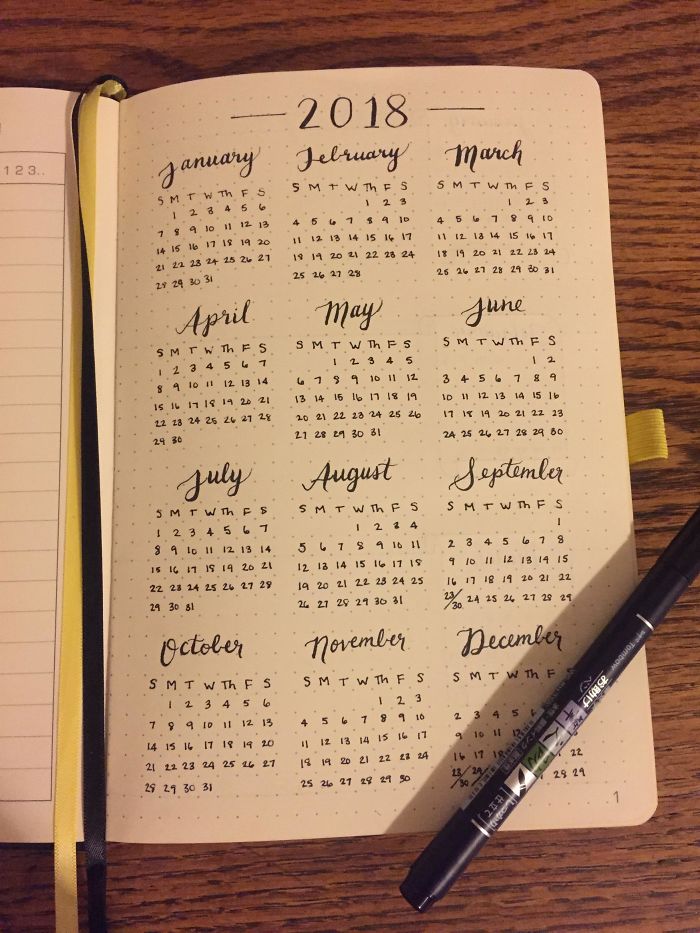 1 2 3..
— 2018 —
January
S M T W Th F S
1 2 3 4 5 6
7 8 9 10 11 12 13
14 15 16 17 18 19 20
21 22 23 24 25 26 27
28 29 30 31
February
S M T W Th F S
1 2 3
4 5 6 7 8 9 10
11 12 13 14 15 16 17
18 19 20 21 22 23 24
25 26 27 28
March
S M T W Th F S
1 2 3
4 5 6 7 8 9 10
11 12 13 14 15 16 17
18 19 20 21 22 23 24
25 26 27 28 29 30 31
April
S M T W Th F S
1 2 3 4 5 6 7
8 9 10 11 12 13 14
15 16 17 18 19 20 21
22 23 24 25 26 27 28
29 30
May
S M T W Th F S
1 2 3 4 5
6 7 8 9 10 11 12
13 14 15 16 17 18 19
20 21 22 23 24 25 26
27 28 29 30 31
June
S M T W Th F S
1 2
3 4 5 6 7 8 9
10 11 12 13 14 15 16
17 18 19 20 21 22 23
24 25 26 27 28 29 30
July
S M T W Th F S
1 2 3 4 5 6 7
8 9 10 11 12 13 14
15 16 17 18 19 20 21
22 23 24 25 26 27 28
29 30 31
August
S M T W Th F S
1 2 3 4
5 6 7 8 9 10 11
12 13 14 15 16 17 18
19 20 21 22 23 24 25
26 27 28 29 30 31
September
S M T W Th F S
1
2 3 4 5 6 7 8
9 10 11 12 13 14 15
16 17 18 19 20 21 22
23/30 24 25 26 27 28 29
October
S M T W Th F S
1 2 3 4 5 6
7 8 9 10 11 12 13
14 15 16 17 18 19 20
21 22 23 24 25 26 27
28 29 30 31
November
S M T W Th F S
1 2 3
4 5 6 7 8 9 10
11 12 13 14 15 16 17
18 19 20 21 22 23 24
25 26 27 28 29 30
December
S M T W Th
2 3 4 5
9 10 11
16 17 22
23/30 28 29
Tombow
1